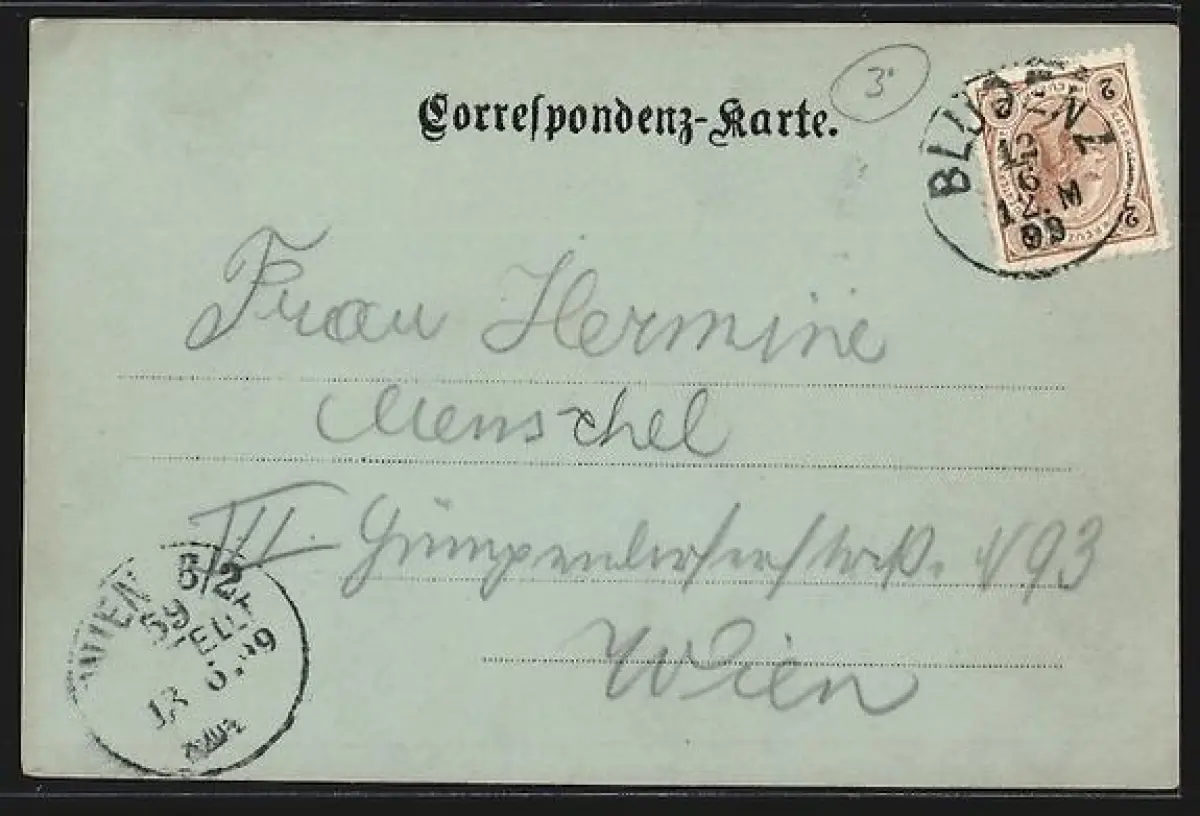 Correspondenz-Karte.
3
BLUDENZ
12
6
12. M
99
2 2
2 2
Frau Hermine
Menschel
VII. Gumpendorferstraße. N 93
Wien
WIEN 6/2
59
13 6. 99